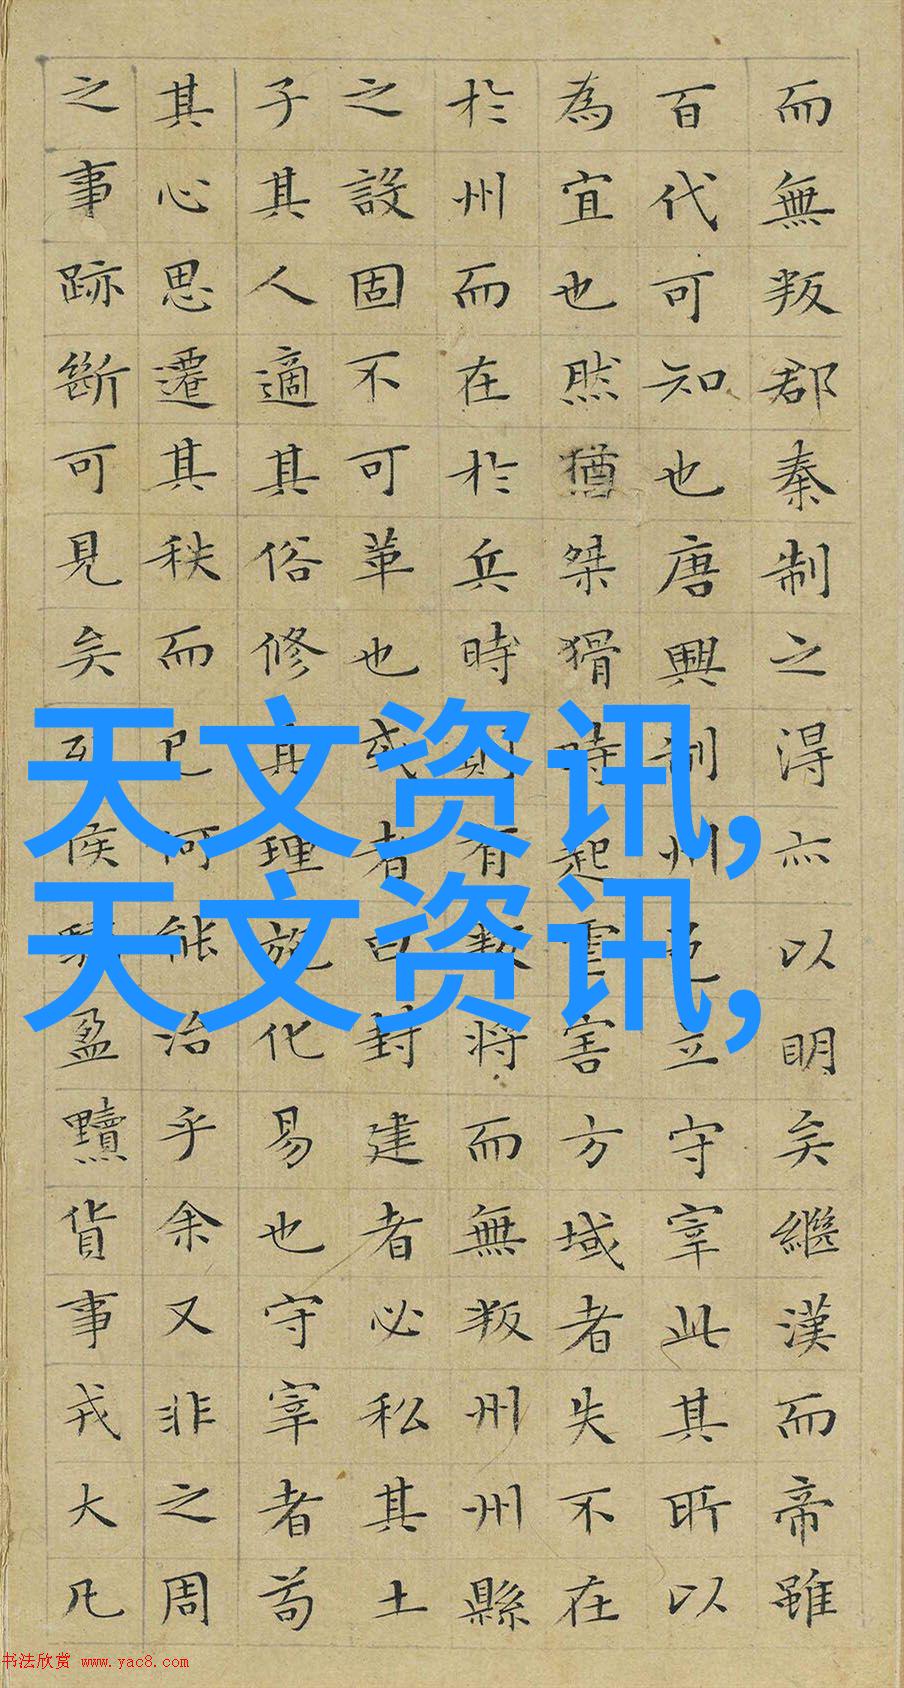 而無叛郡秦制之得亦以明矣繼漢而帝雖
百代可知也唐興制州邑立守宰此其所以
為宜也然猶桀猾時起虐害方域者失不在
於州而在於兵時則有叛將而無叛州州縣
之設固不可革也或者曰封建者必私其土
子其人適其俗修其理施化易也守宰者苟
其心思遷其秩而已何能治乎余又非之周
之事跡斷可見矣列侯驕盈黷貨事戎大凡
天文资讯,
天文资讯,
书法欣赏 www.yac8.com